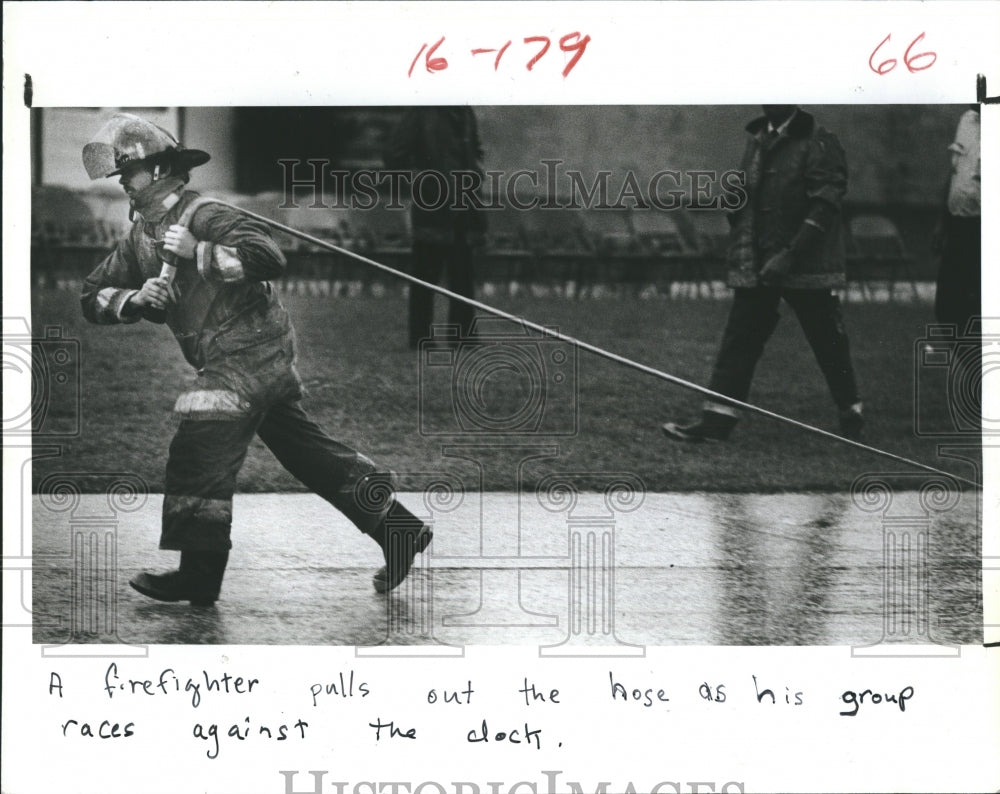 16-179 66
HISTORIC IMAGES
A firefighter pulls out the hose as his group
races against the clock.
HISTORIC IMAGES